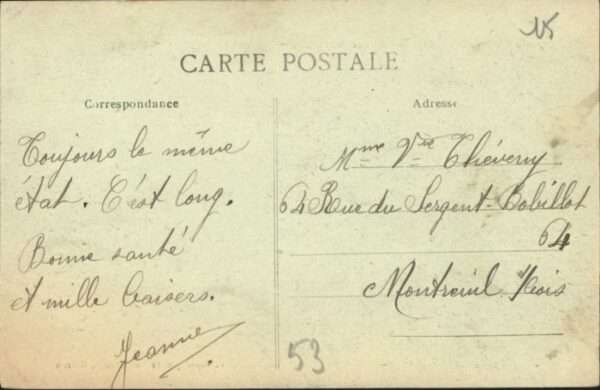 15
CARTE POSTALE
Correspondance
Toujours le même
état. C'est long.
Bonne santé
et mille baisers.
Jeanne
Adresse
Mme Vve Théveny
64 Rue du Sergent-Bobillot
64
Montreuil s/Bois
53